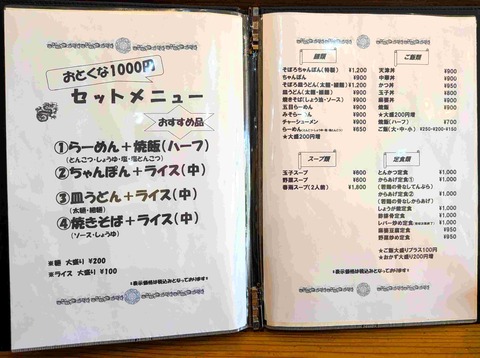 おとくな1000円
セットメニュー
おすすめ品
①らーめん＋焼飯(ハーフ)
(とんこつ・しょうゆ・塩・塩とんこつ)
②ちゃんぽん＋ライス(中)
③皿うどん＋ライス(中)
(太麺・細麺)
④焼きそば＋ライス(中)
(ソース・しょうゆ)
※麺 大盛り ¥200
※ライス 大盛り ¥100
※表示価格は税込みとなっております※
麺類
そぼろちゃんぽん(特製) ¥1,200
ちゃんぽん ¥900
そぼろ皿うどん(太麺・細麺) ¥1,200
皿うどん(太麺・細麺) ¥900
焼きそば(しょうゆ・ソース) ¥900
五目らーめん ¥900
みそらーめん ¥900
チャーシューメン ¥900
らーめん ¥650
★大盛200円増
スープ類
玉子スープ ¥600
野菜スープ ¥600
春雨スープ(2人前) ¥1,800
ご飯類
天津丼 ¥900
中華丼 ¥900
かつ丼 ¥950
玉子丼 ¥800
麻婆丼 ¥900
焼飯 ¥900
★大盛り200円増
焼飯(ハーフ) ¥700
ご飯(大・中・小) ¥250・¥200・¥150
定食類
とんかつ定食 ¥950
からあげ定食① ¥950
(若鶏の骨なしてんぷら)
からあげ定食② ¥950
(若鶏の骨なしからあげ)
しょうが焼定食 ¥950
酢豚定食 ¥950
レバー炒め定食 ¥950
麻婆豆腐定食 ¥950
野菜炒め定食 ¥950
★ご飯大盛りプラス100円
★おかず大盛り200円増
※表示価格は税込みとなっております※